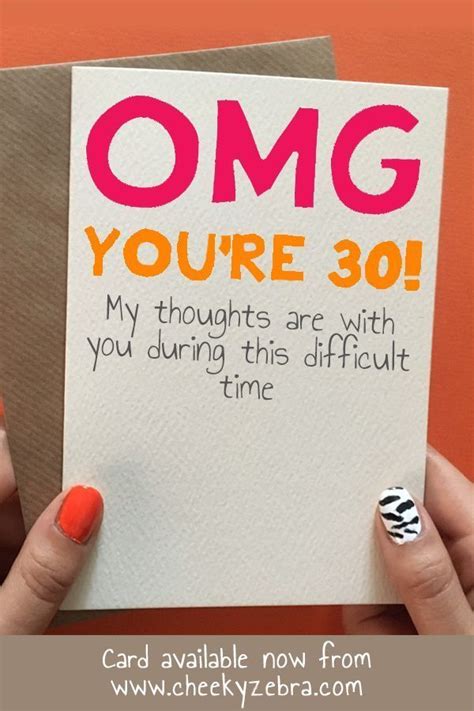 OMG
YOU'RE 30!
My thoughts are with
you during this difficult
time
Card available now from
www.cheekyzebra.com